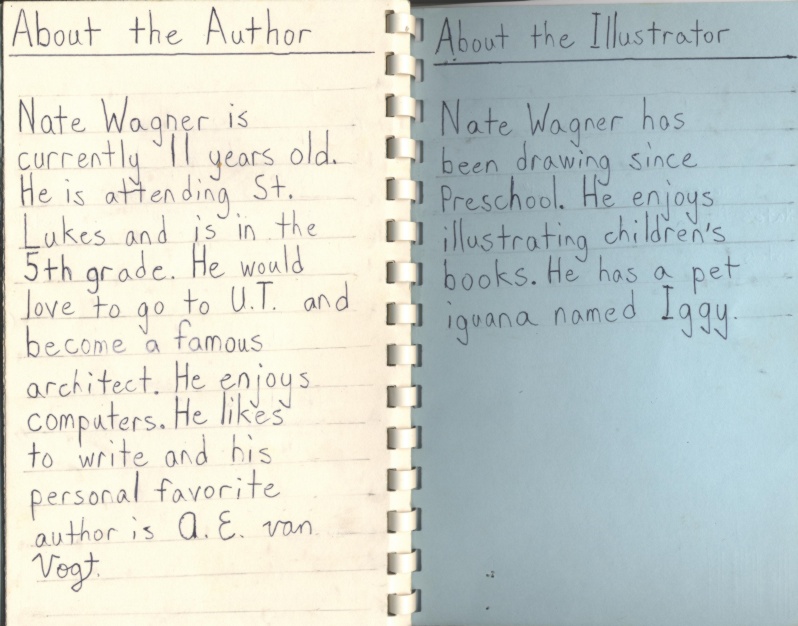 About the Author
Nate Wagner is
currently 11 years old.
He is attending St.
Lukes and is in the
5th grade. He would
love to go to U.T. and
become a famous
architect. He enjoys
computers. He likes
to write and his
personal favorite
author is A. E. van
Vogt.
About the Illustrator
Nate Wagner has
been drawing since
Preschool. He enjoys
illustrating children's
books. He has a pet
iguana named Iggy.